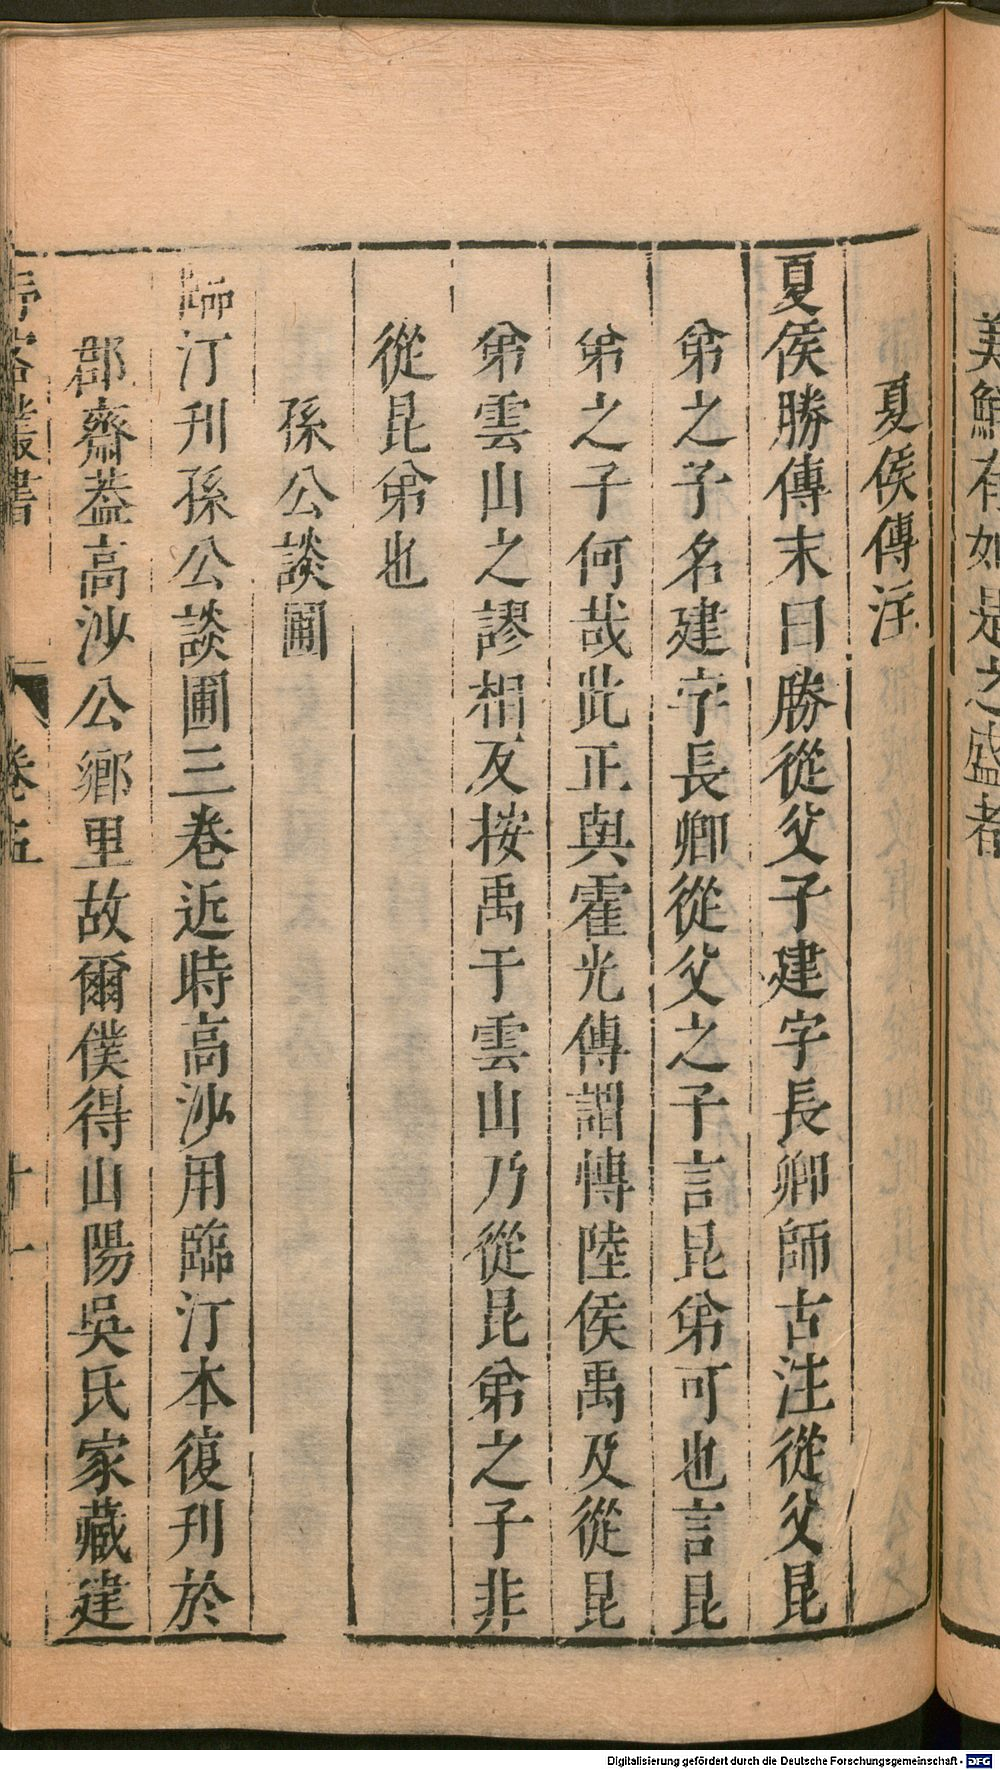 美鯖有如是之盛者
夏侯傳注
夏侯勝傳末曰勝從父子建字長卿師古注從父昆
弟之子名建字長卿從父之子言昆弟可也言昆
弟之子何哉此正與霍光傳謂博陸侯禹及從昆
弟雲山之謬相反按禹于雲山乃從昆弟之子非
從昆弟也
孫公談圃
臨汀刊孫公談圃三卷近時高沙用臨汀本復刊於
郡齋葢高沙公鄉里故爾僕得山陽吳氏家藏建
野客叢書 卷五 十一
Digitalisierung gefördert durch die Deutsche Forschungsgemeinschaft - DFG